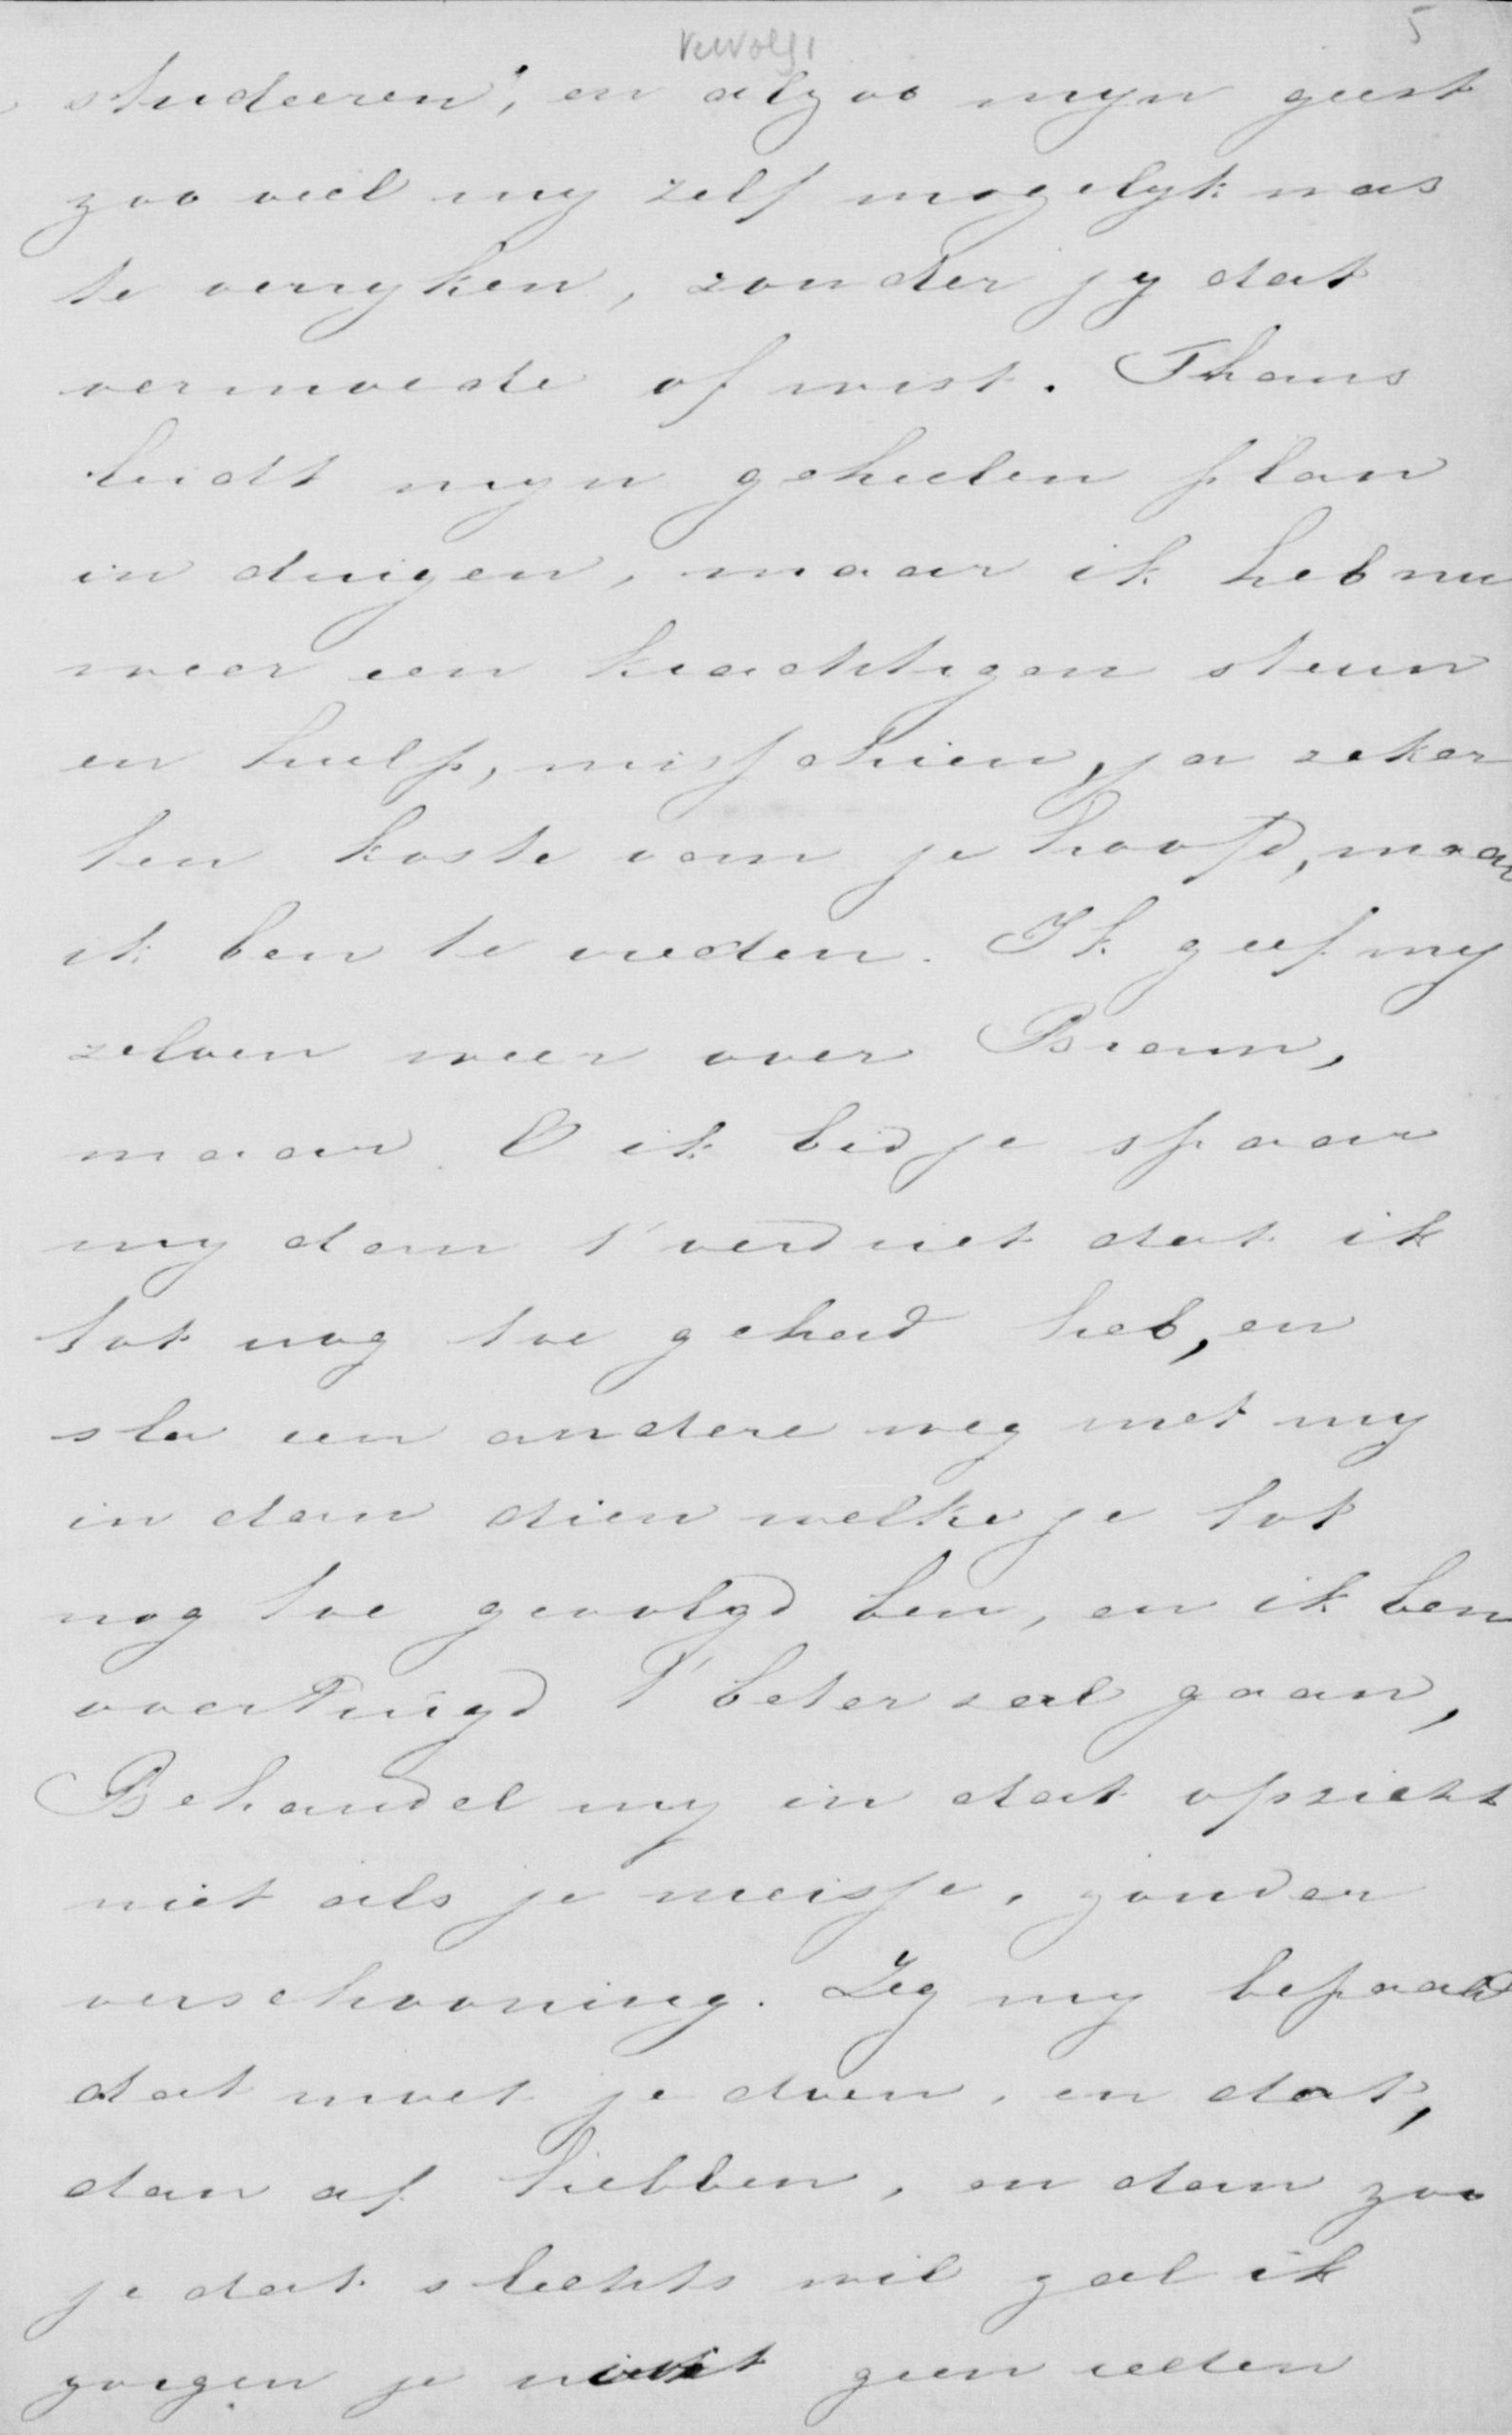 vervolg 5
studeeren, en alzoo myn geest
zoo veel my zelf mogelyk was
te verryken, zonder jy dat
vermoedde of wist. Thans
leidt myn geheelen plan
in duigen, maar ik heb nu
weer een krachtigen steun
en hulp, misschien, ja zeker
ten koste van je hoofd, maar
ik ben te vreden. Ik geef my
zelven weer over Bram,
maar O ik bid je spaar
my dan t' verdriet dat ik
tot nog toe gehad heb, en
sla een andere weg met my
in dan dien welke je tot
nog toe gevolgd ben, en ik ben
overtuigd t' beter zal gaan,
Behandel my in dat opzicht
niet als je meisje, zonder
verschooning. Zeg my bepaald
dat moet je doen, en dat,
dan af hebben, en dan zoo
je dat slechts wil zal ik
zorgen je geen reden